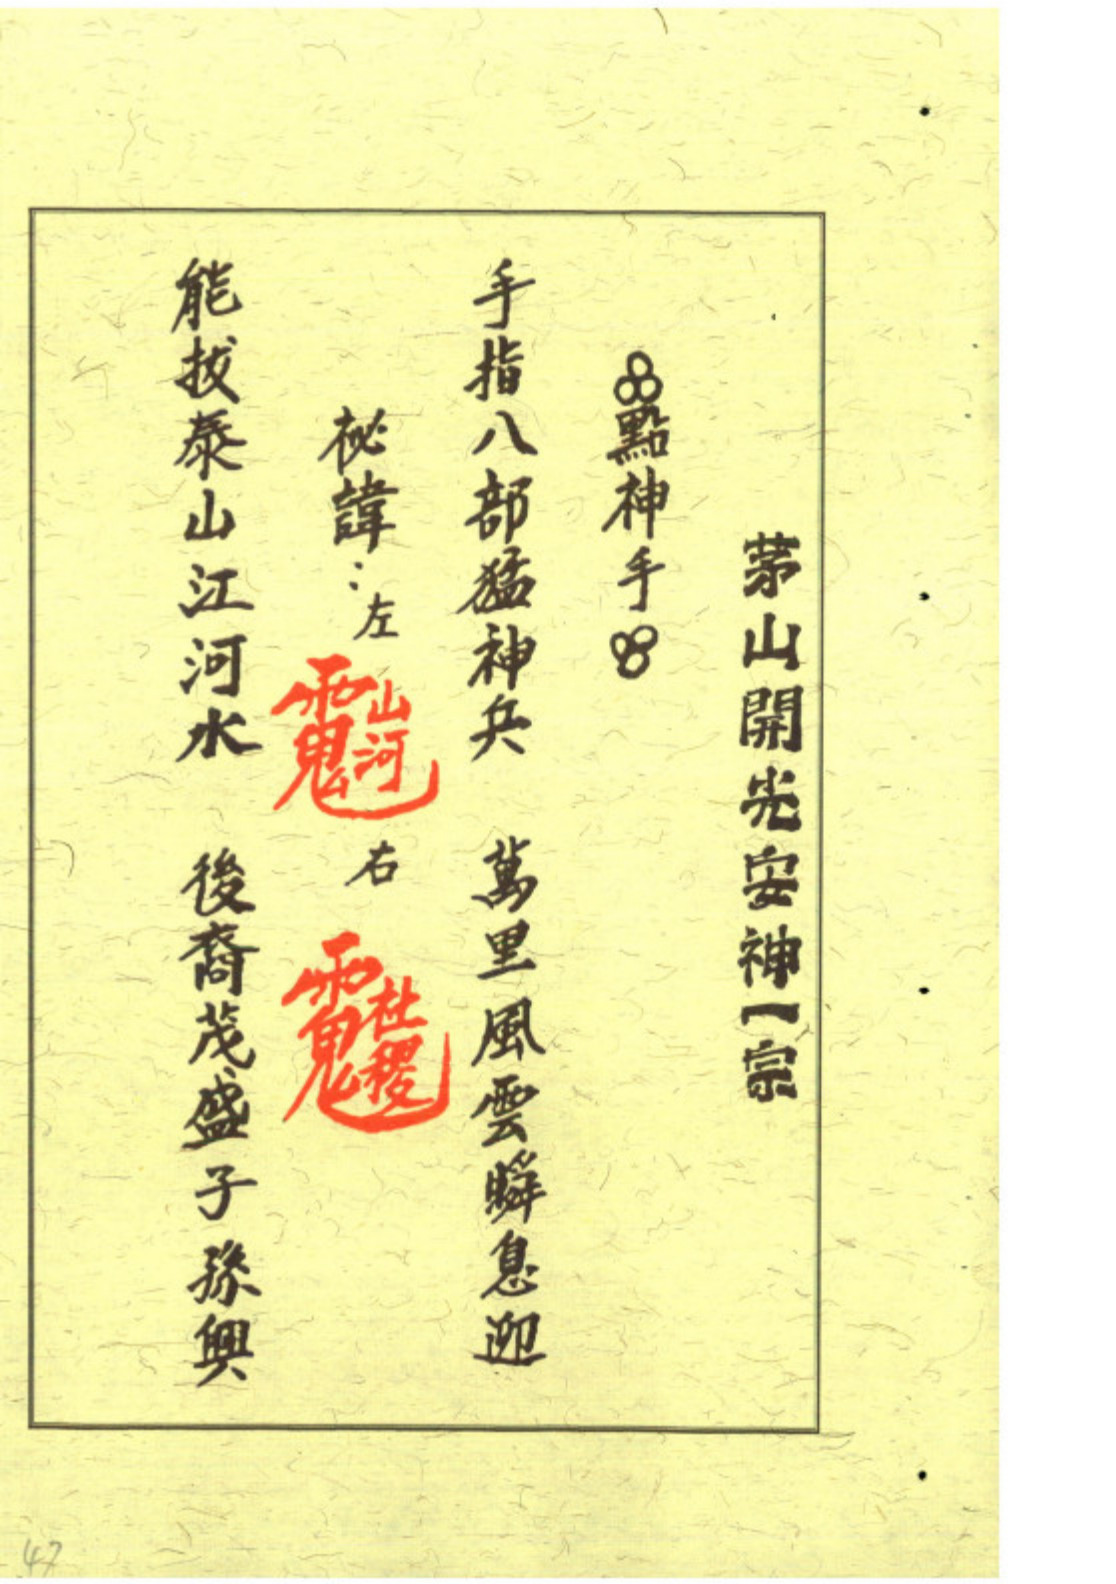 茅山開光安神一宗
點神手
手指八部猛神兵 萬里風雲瞬息迎
秘諱：左 右
能拔泰山江河水 後裔茂盛子孫興
47